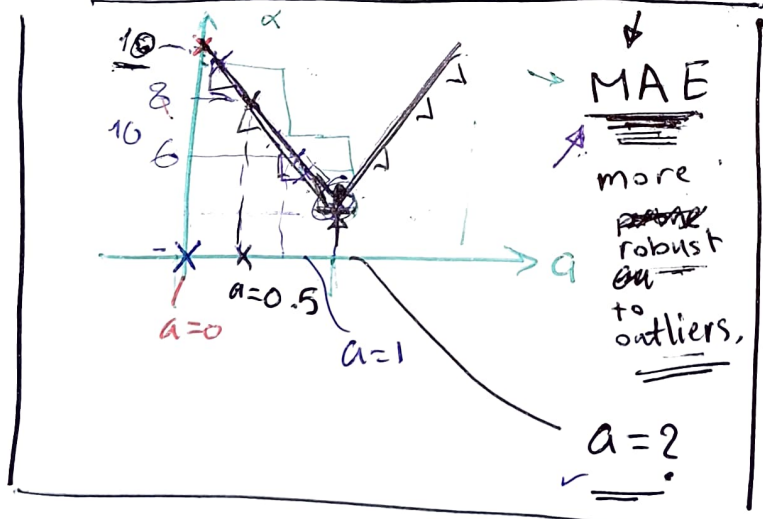 α
10
8
10
6
a
a=0
a=0.5
a=1
MAE
more
robust
to
outliers.
a=2